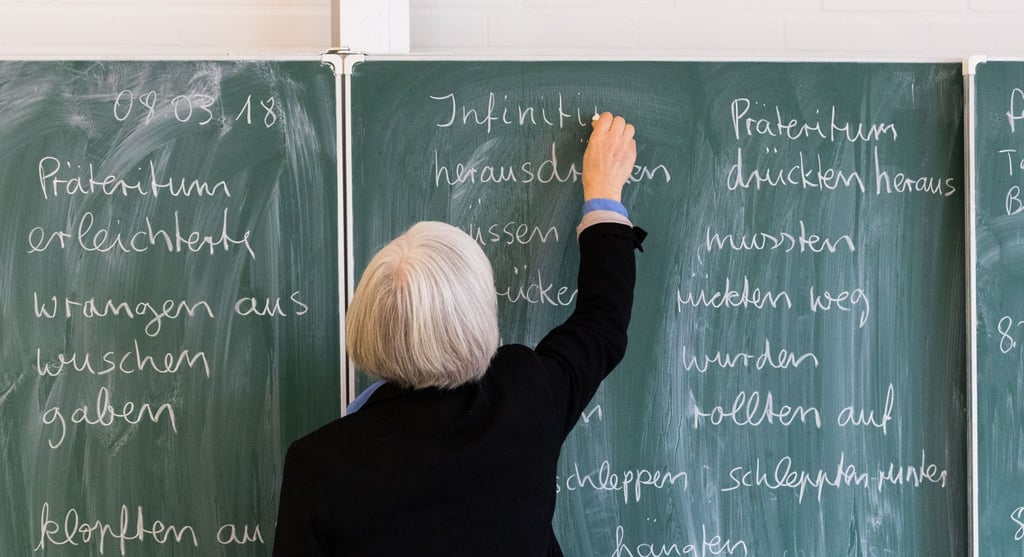 08 03 18
Präteritum
erleichterte
wrangen aus
wuschen
gaben
klopften au
Infiniti
herausdrü en
ussen
ücken
n
schleppen
Präteritum
drückten heraus
mussten
rückten weg
wurden
rollten auf
schleppten runter
hangten